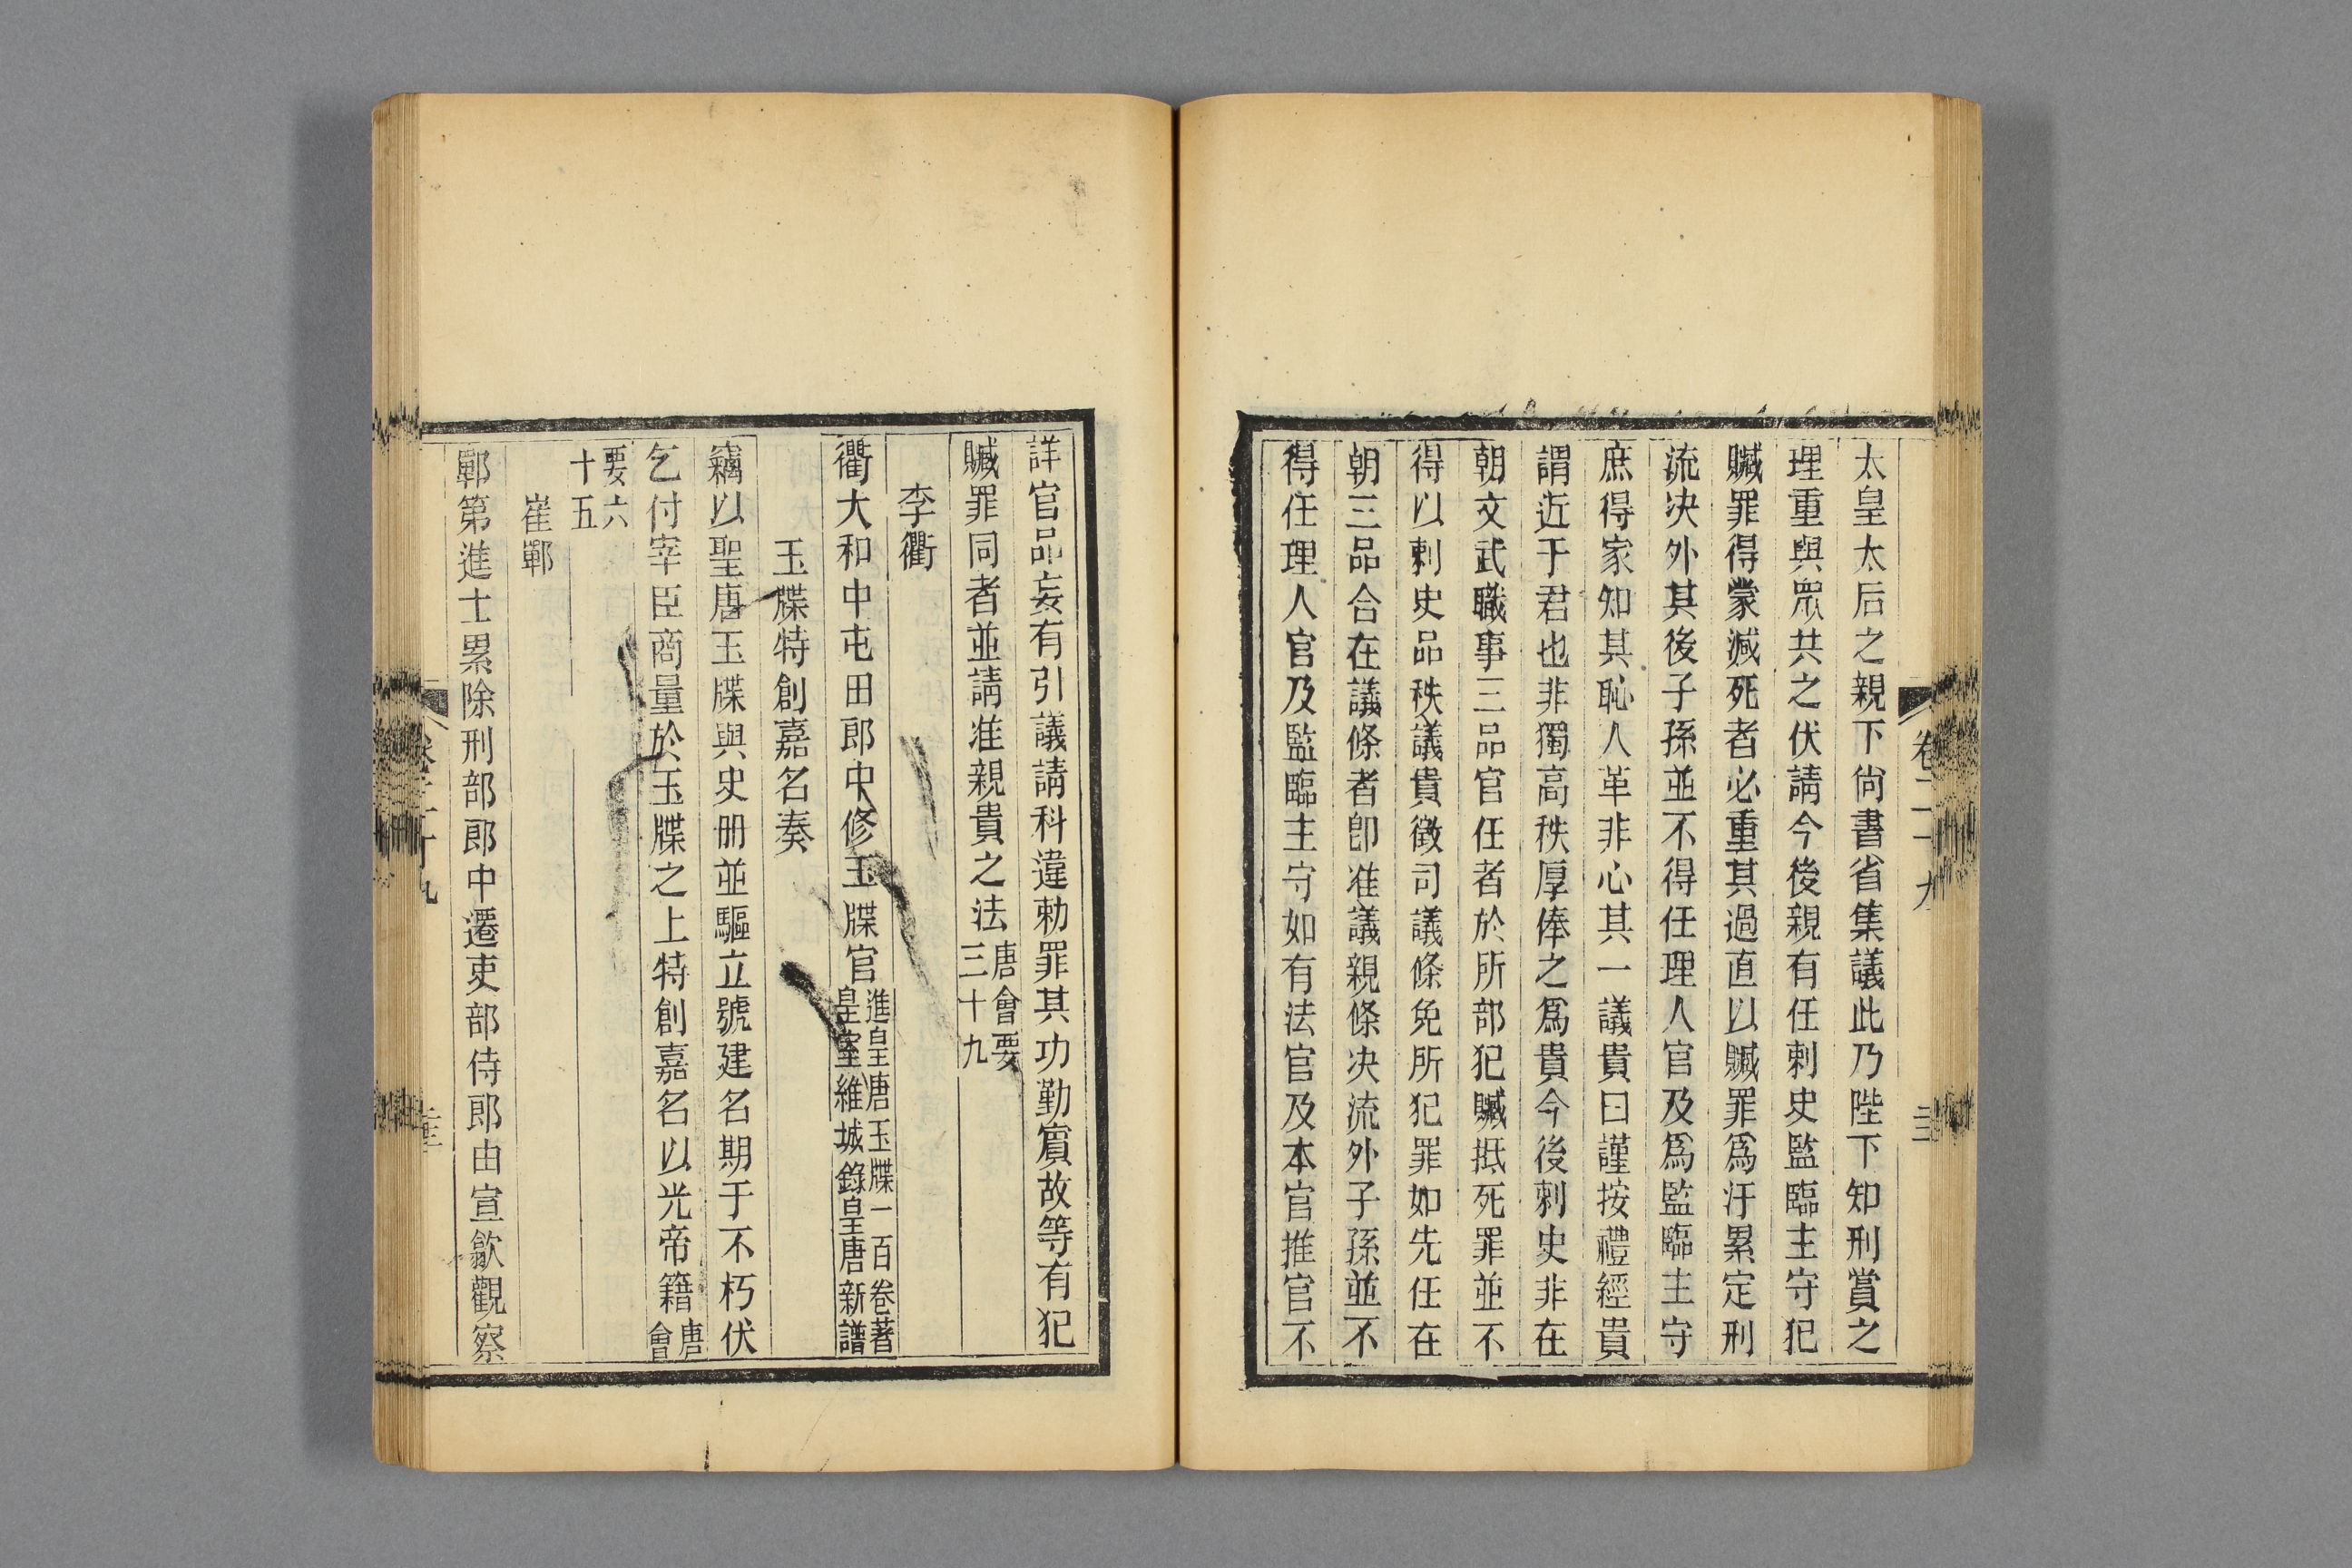 太皇太后之親下尙書省集議此乃陛下知刑賞之
理重與眾共之伏請今後親有任刺史監臨主守犯
贓罪得蒙減死者必重其過直以贓罪爲汙累定刑
流决外其後子孫並不得任理人官及爲監臨主守
庶得家知其恥人革非心其一議貴曰謹按禮經貴
謂近于君也非獨高秩厚俸之爲貴今後刺史非在
朝文武職事三品官任者於所部犯贓抵死罪並不
得以刺史品秩議貴徵司議條免所犯罪如先任在
朝三品合在議條者卽准議親條决流外子孫並不
得任理人官及監臨主守如有法官及本官推官不
詳官品妄有引議請科違勅罪其功勤賔故等有犯
贓罪同者並請准親貴之法唐會要三十九
李衢
衢大和中屯田郎中修玉牒官進皇唐玉牒一百卷著皇室維城錄皇唐新譜
玉牒特創嘉名奏
竊以聖唐玉牒與史册並驅立號建名期于不朽伏
乞付宰臣商量於玉牒之上特創嘉名以光帝籍唐會
要六十五
崔鄲
鄲第進士累除刑部郎中遷吏部侍郎由宣歙觀察